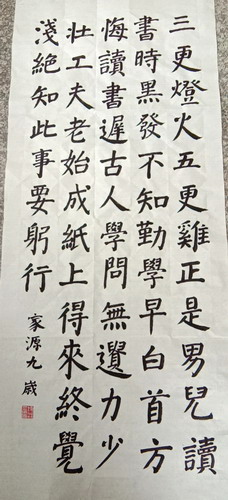 三更燈火五更雞正是男兒讀
書時黑發不知勤學早白首方
悔讀書遲古人學問無遺力少
壯工夫老始成紙上得來終覺
淺絕知此事要躬行
家源九歲